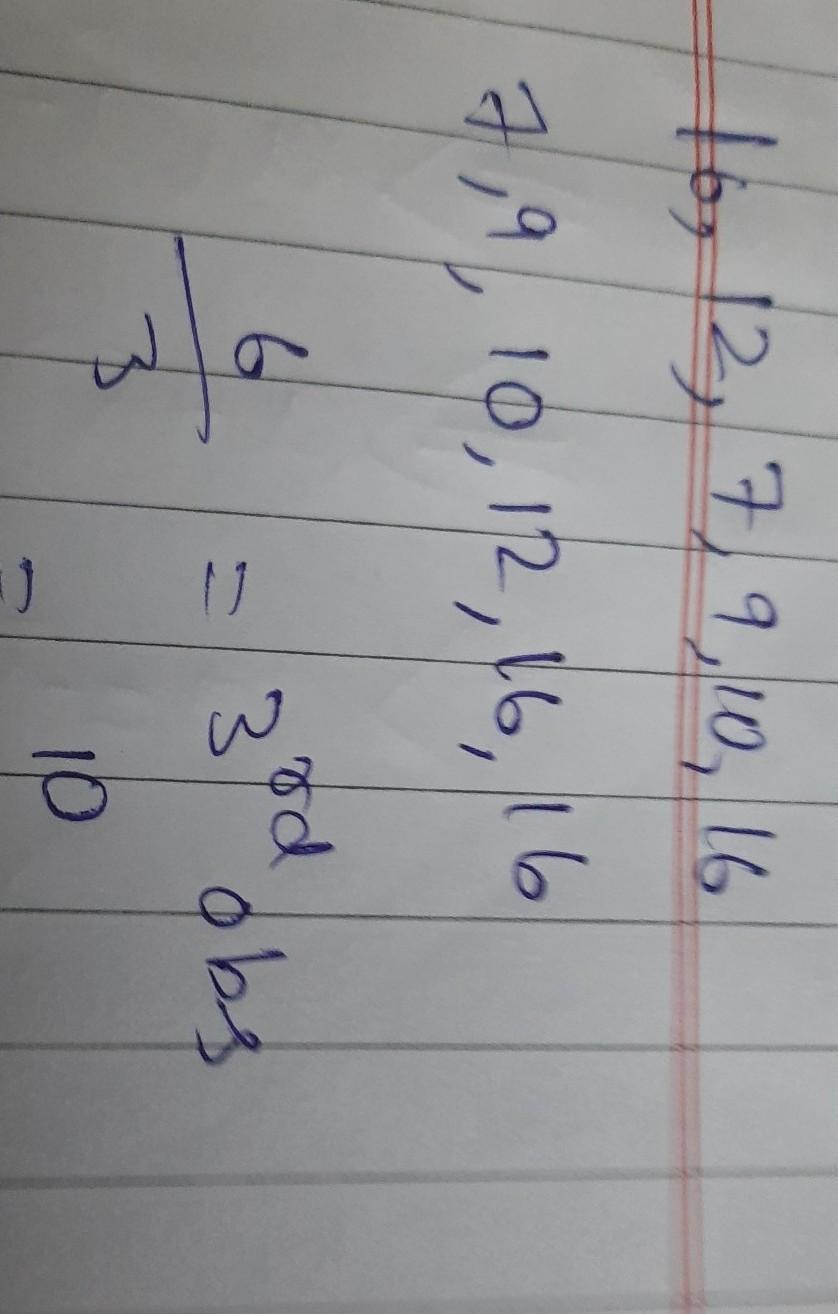 16, 12, 7, 9, 10, 16
7, 9, 10, 12, 16, 16
6/3 = 3rd obs
= 10